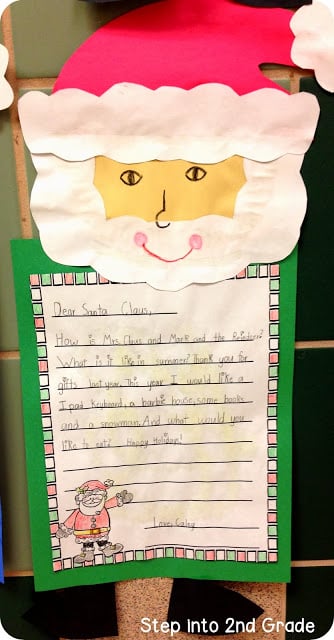 Dear Santa Claus,
How is Mrs. Claus and Mark and the Reindeer?
What is it like in summer? Thank you for
gifts last year. This year I would like a
I pad keyboard, a barbie house, some books
and a snowman. And what would you
like to eat? Happy Holidays!
Love,
Step into 2nd Grade